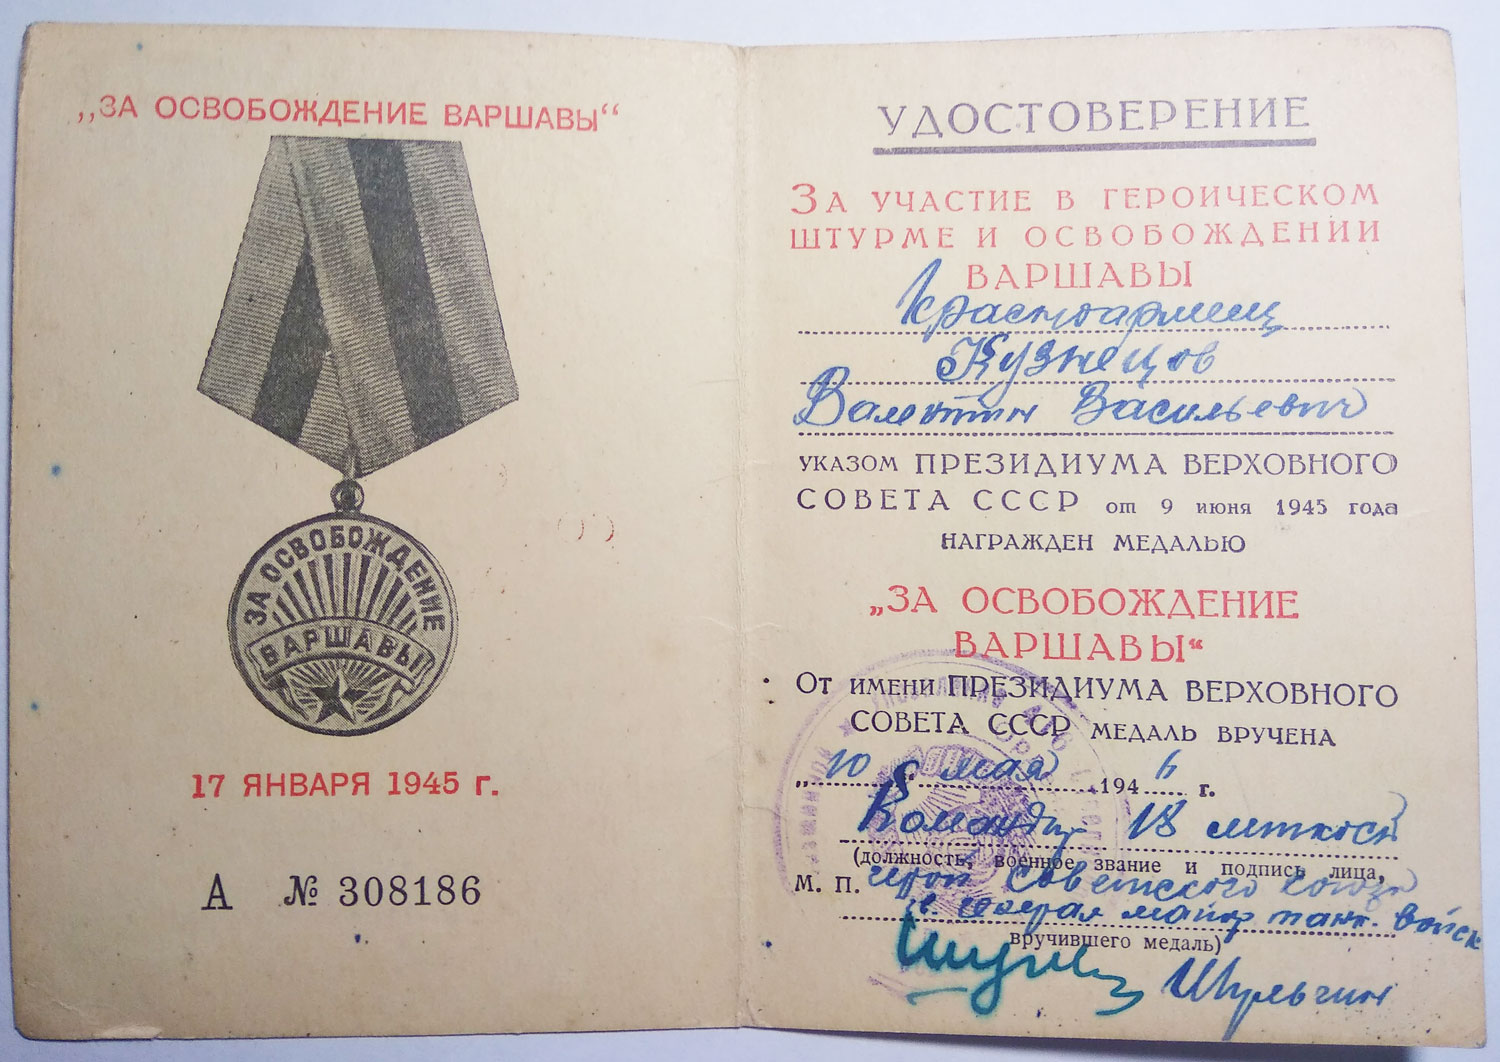 „ЗА ОСВОБОЖДЕНИЕ ВАРШАВЫ“
ЗА ОСВОБОЖДЕНИЕ
ВАРШАВЫ
17 ЯНВАРЯ 1945 г.
А № 308186
УДОСТОВЕРЕНИЕ
ЗА УЧАСТИЕ В ГЕРОИЧЕСКОМ
ШТУРМЕ И ОСВОБОЖДЕНИИ
ВАРШАВЫ
Красноармеец
Кузнецов
Валентин Васильевич
УКАЗОМ ПРЕЗИДИУМА ВЕРХОВНОГО
СОВЕТА СССР от 9 июня 1945 года
НАГРАЖДЕН МЕДАЛЬЮ
„ЗА ОСВОБОЖДЕНИЕ
ВАРШАВЫ“
ОТ ИМЕНИ ПРЕЗИДИУМА ВЕРХОВНОГО
СОВЕТА СССР МЕДАЛЬ ВРУЧЕНА
„10 мая 1946 г.
Командир 18
(должность, военное звание и подпись лица,
М. П. герой Советского Союза
майор танк. войск
вручившего медаль)
Шульгин